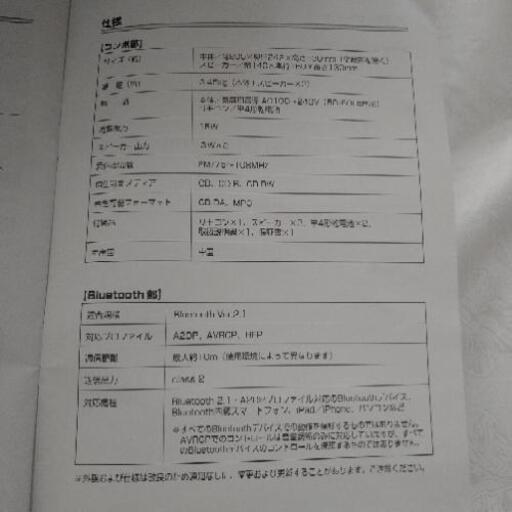 仕様
[コンポ部]
サイズ(約)
スピーカー/幅140×奥行
重量(約)
3.45kg(本体+スピーカー×2)
電源
リモコン/単4形乾電池
消費電力
15W
スピーカー出力
3W×2
FM/76~108MHz
再生可能メディア
CD、CD-R、CD-RW
再生可能フォーマット
CD-DA、MP3
付属品
リモコン×1、スピーカー×2、単4形乾電池×2、
取扱説明書×1、保証書×1
生産国
中国
[Bluetooth 部]
適合規格
Bluetooth Ver.2.1
対応プロファイル
A2DP、AVRCP、HFP
通信距離
最大約10m(使用環境によって異なります)
送信出力
class 2
対応機種
Bluetooth 2.1・A2DPプロファイル対応のBluetoothデバイス、
Bluetooth内蔵スマートフォン、iPad/iPhone、パソコンなど
※すべてのBluetoothデバイスでの動作を保証するものではありません。
AVRCPでのコントロールは音量調節のみに対応していますが、すべて
のBluetoothデバイスのコントロールを保証するものではありません。
※外観および仕様は改良のため予告なしに、変更および更新することがあります。ご了承ください。